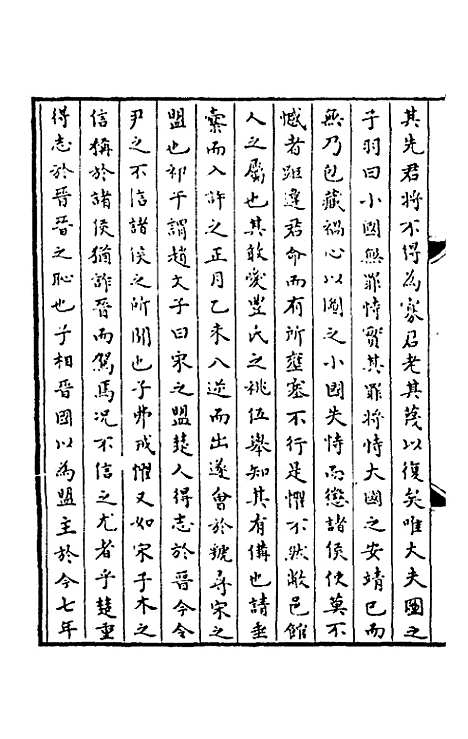 其先君將不得為寡君老其蔑以復矣唯大夫圖之
子羽曰小國無罪恃實其罪將恃大國之安靖己而
無乃包藏禍心以圖之小國失恃而懲諸侯使莫不
憾者距違君命而有所壅塞不行是懼不然敝邑館
人之屬也其敢愛豐氏之祧伍舉知其有備也請垂
櫜而入許之正月乙未入逆而出遂會於虢尋宋之
盟也祁午謂趙文子曰宋之盟楚人得志於晉今令
尹之不信諸侯之所聞也子弗戒懼又如宋子木之
信稱於諸侯猶詐晉而駕焉況不信之尤者乎楚重
得志於晉晉之恥也子相晉國以為盟主於今七年